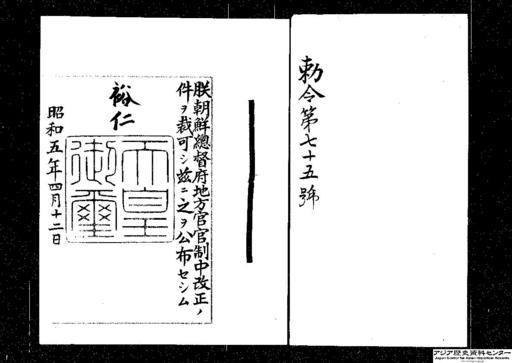 勅令第七十五號
朕朝鮮總督府地方官官制中改正ノ
件ヲ裁可シ茲ニ之ヲ公布セシム
裕仁
天皇
御璽
昭和五年四月十二日
アジア歴史資料センター
Japan Center for Asian Historical Records